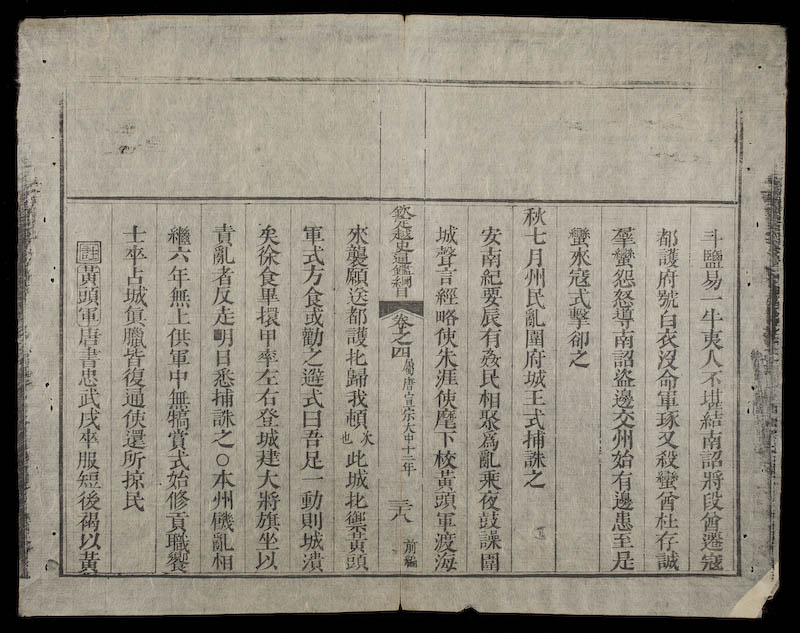 斗鹽易一牛夷人不堪結南詔將段酋遷寇
都護府號白衣沒命軍琢又殺蠻酋杜存誠
羣蠻怨怒導南詔盜邊交州始有邊患至是
蠻水寇式擊卻之
秋七月州民亂圍府城王式捕誅之
安南紀要辰有姦民相聚爲亂乘夜鼓譟圍
城聲言經略使朱涯使麾下校黃頭軍渡海
欽定越史通鑑綱目 卷之四 屬唐宣宗大中十二年 三八 前編
來襲願送都護北歸我頓次也此城北禦黃頭
軍式方食或勸之避式曰吾足一動則城潰
矣徐食畢擐甲率左右登城建大將旗坐以
責亂者反走明日悉捕誅之○本州饑亂相
繼六年無上供軍中無犒賞式始修貢職饗
士卒占城眞臘皆復通使還所掠民
註黃頭軍唐書忠武戍卒服短後褐以黃